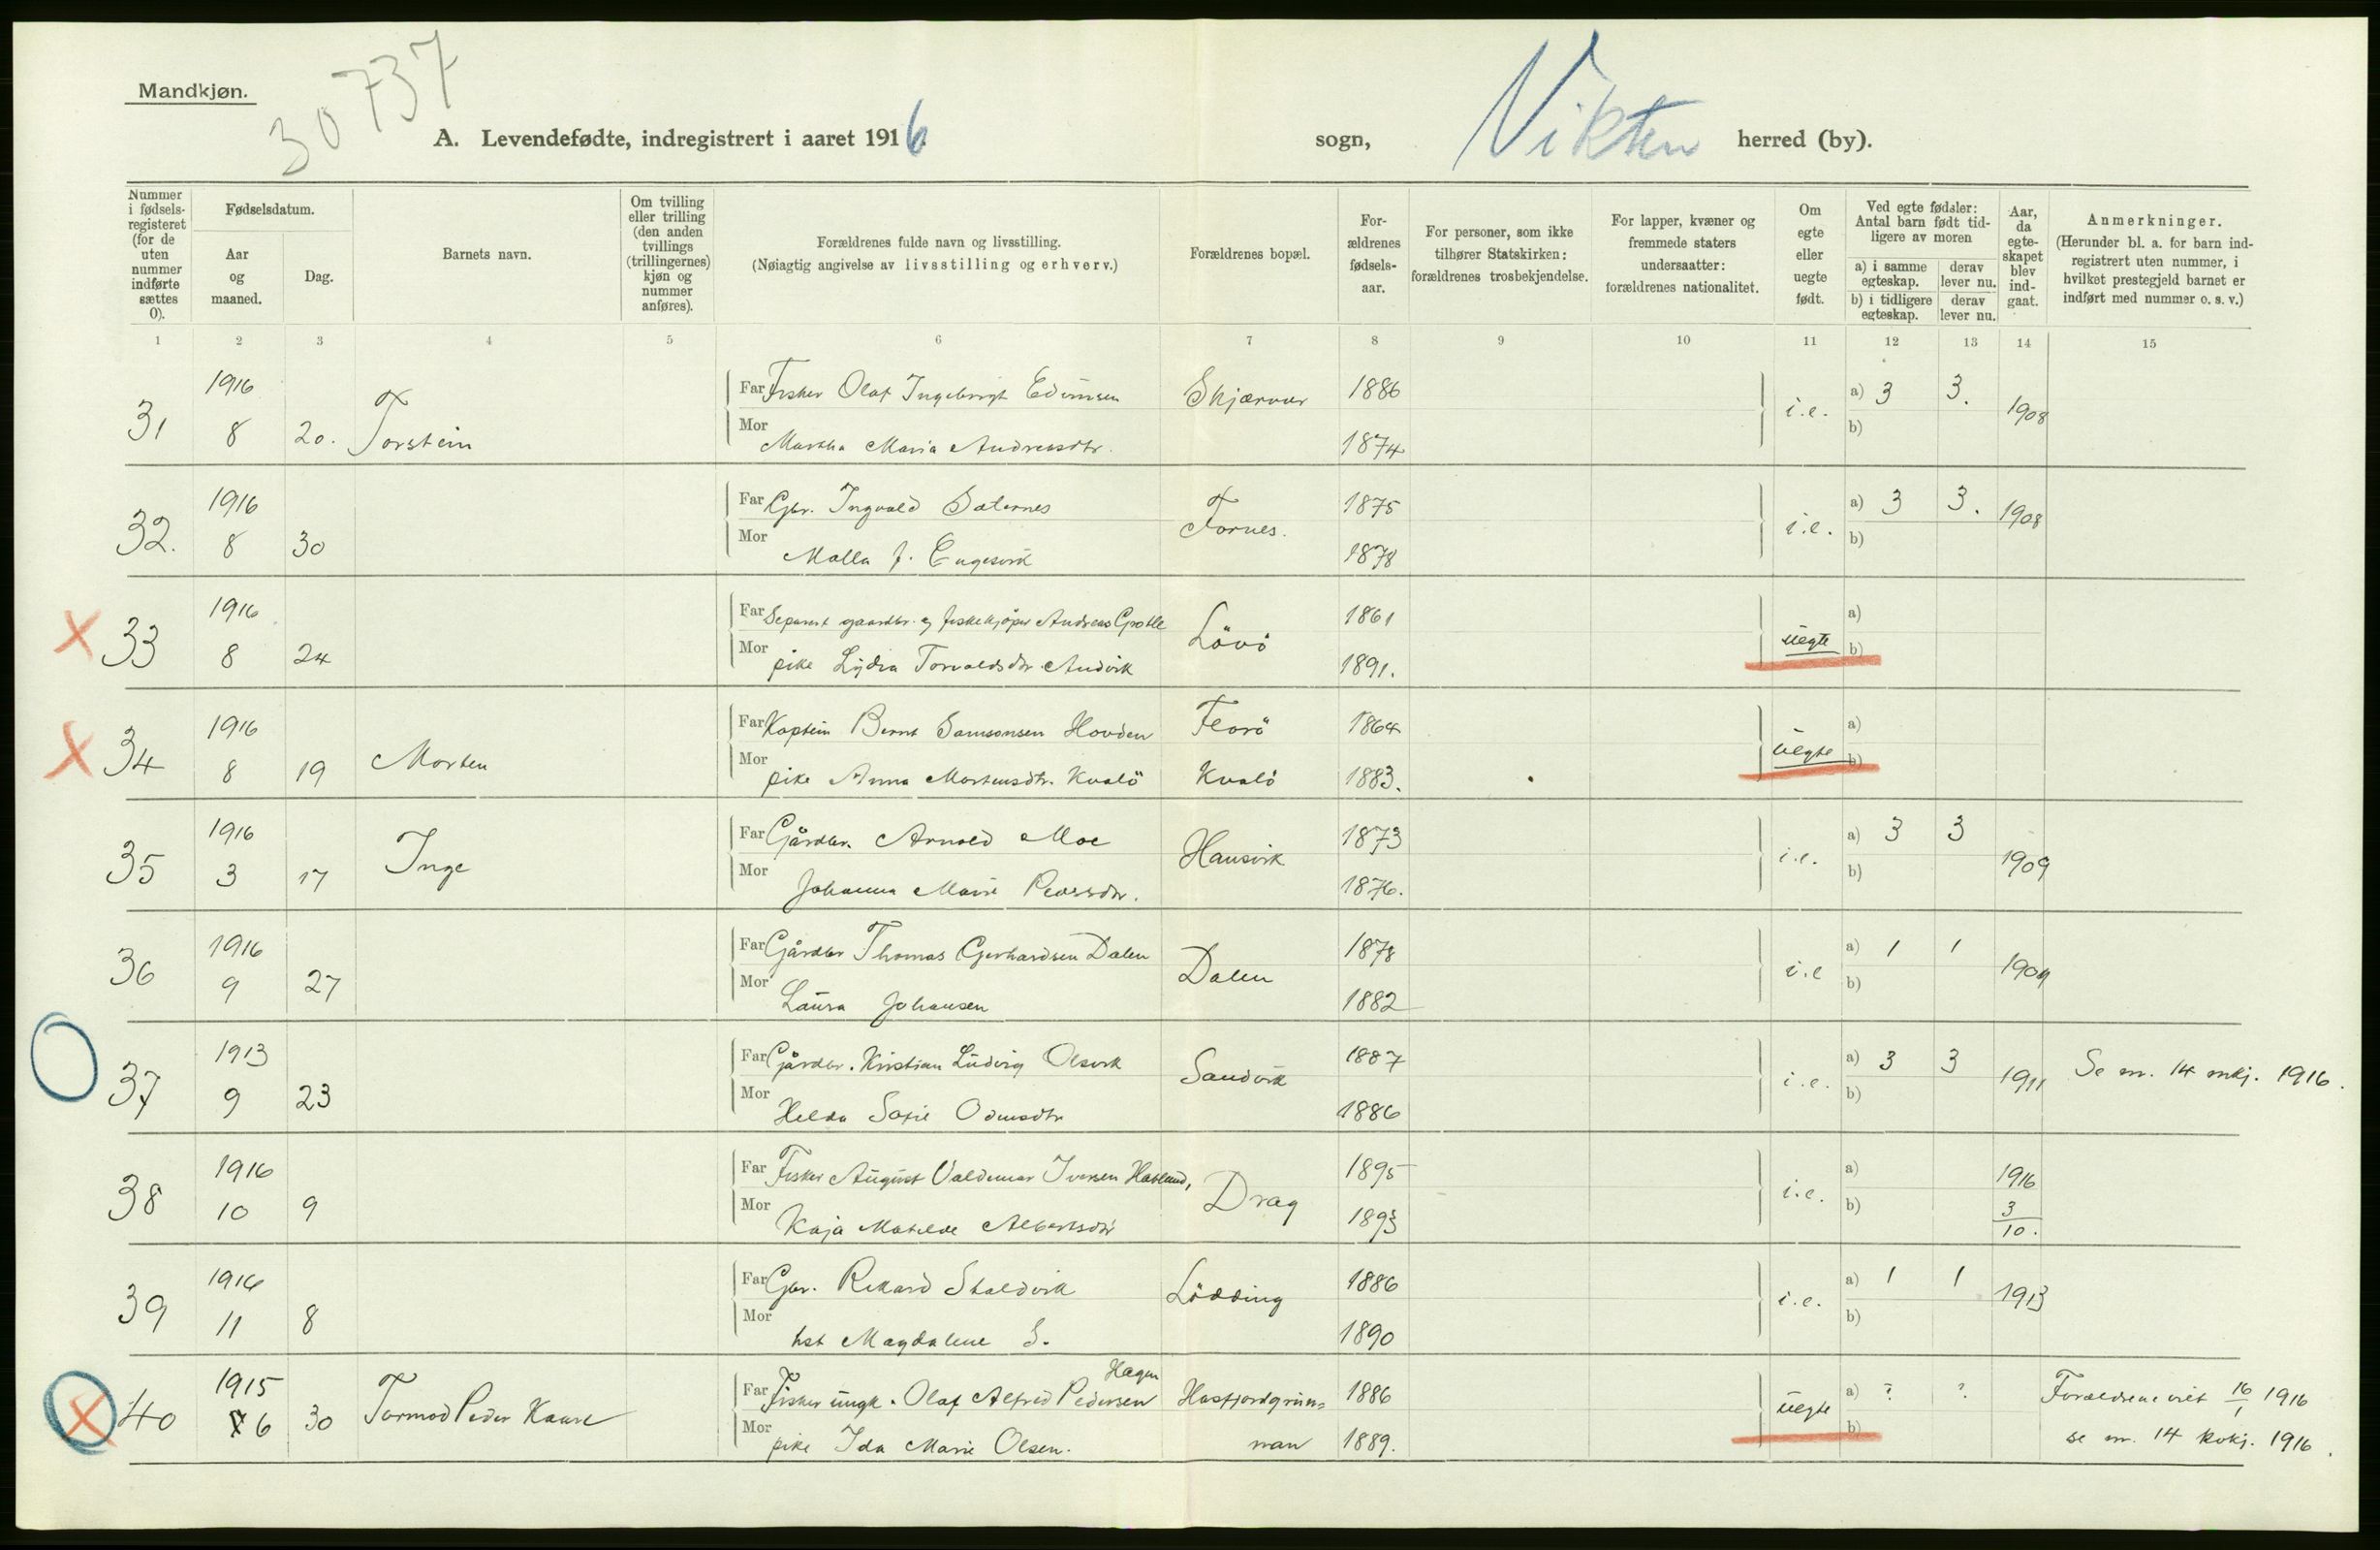 Mandkjøn.
30737
A. Levendefødte, indregistrert i aaret 1916.
sogn, Vikten herred (by).
Nummer i fødsels-registeret (for de uten nummer indførte sættes 0).
Fødselsdatum.
Aar og maaned.
Dag.
Barnets navn.
Om tvilling eller trilling (den anden tvillings (trillingernes) kjøn og nummer anføres).
Forældrenes fulde navn og livsstilling.
(Nøiagtig angivelse av livsstilling og erhverv.)
Forældrenes bopæl.
For-ældrenes fødsels-aar.
For personer, som ikke tilhører Statskirken: forældrenes trosbekjendelse.
For lapper, kvæner og fremmede staters undersaatter: forældrenes nationalitet.
Om egte eller uegte født.
Ved egte fødsler: Antal barn født tid-ligere av moren
a) i samme egteskap.
derav lever nu.
b) i tidligere egteskap.
derav lever nu.
Aar, da egte-skapet blev ind-gaat.
Anmerkninger.
(Herunder bl. a. for barn ind-registrert uten nummer, i hvilket prestegjeld barnet er indført med nummer o. s. v.)
1 2 3 4 5 6 7 8 9 10 11 12 13 14 15
31 1916 8 20. Torstein
Far Fisker Olaf Ingebrigt Edvinsen Skjærvær 1886 i.e. a) 3 3. 1908
Mor Martha Maria Andreasdtr. 1874 b)
32. 1916 8 30
Far Gbr. Ingvald Saternes Fornes. 1875 i.e. a) 3 3. 1908
Mor Malla J. Engesvik 1878 b)
X 33 1916 8 24
Far Separert gaardbr. og fiskekjøper Andreas Grotle Lövö 1861 uegte a)
Mor pike Lydia Torvaldsdtr Andvik 1891. b)
X 34 1916 8 19 Morten
Far Kaptein Bernt Samsonsen Hovden Florö 1864 uegte a)
Mor pike Anna Mortensdtr. Kvalö Kvalö 1883. b)
35 1916 3 17 Inge
Far Gårdbr. Arnold Moe Hansvik 1873 i.e. a) 3 3 1909
Mor Johanna Marie Pedersdtr. 1876. b)
36 1916 9 27
Far Gårdbr Thomas Gerhardsen Dalen Dalen 1878 i.e a) 1 1 1909
Mor Laura Johansen 1882 b)
37 1913 9 23
Far Gårdbr. Kristian Ludvig Olsvik Sandvik 1887 i.e. a) 3 3 1911 Se nr. 14 mkj. 1916.
Mor Helda Sofie Odinsdtr 1886 b)
38 1916 10 9
Far Fisker August Valdemar Iversen Havlund, Drag 1895 i.e. a) 1916 3/10.
Mor Kaja Matilde Albertsdtr 1893 b)
39 1916 11 8
Far Gbr. Rikard Skaldvik Lödding 1886 i.e. a) 1 1 1913
Mor hst Magdalene S. 1890 b)
X 40 1915 6 30 Tormod Peder Kaare
Hagen
Far Fisker ungk. Olaf Alfred Pedersen Hasfjordgrun= 1886 uegte a) ? ? Foreldrene viet 16/1 1916
Mor pike Ida Marie Olsen. nan 1889. b) se nr. 14 kvkj. 1916.